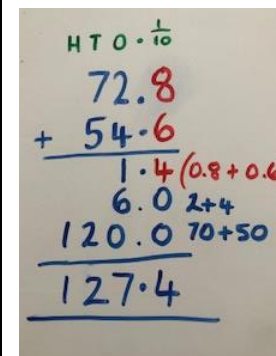 H T O · 1/10
72.8
+ 54.6
1.4 (0.8 + 0.6
6.0 2+4
120.0 70+50
127.4